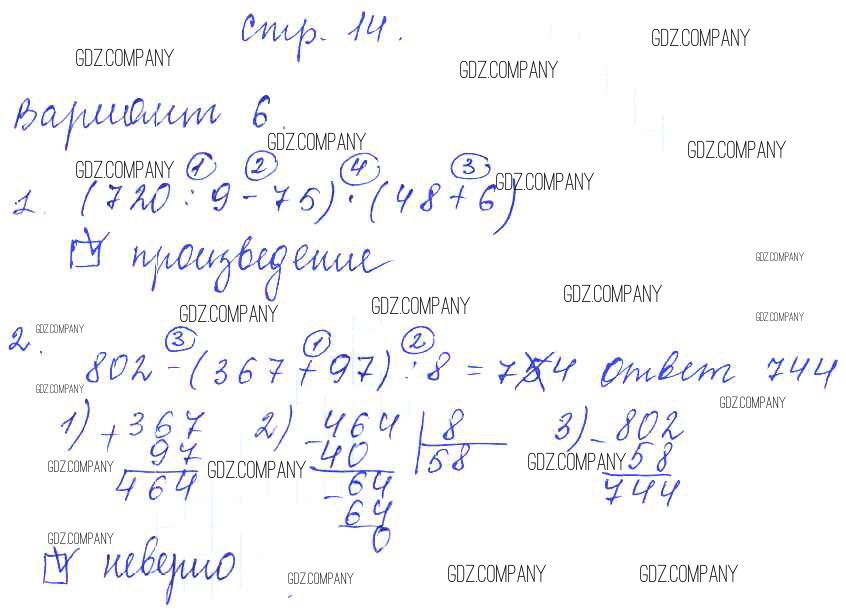 Стр. 14.
GDZ.COMPANY
GDZ.COMPANY
GDZ.COMPANY
Вариант 6.
GDZ.COMPANY
GDZ.COMPANY
GDZ.COMPANY
GDZ.COMPANY
1 2 4 3
1. (720 : 9 - 75) · (48 + 6)
произведение
GDZ.COMPANY
GDZ.COMPANY
GDZ.COMPANY
GDZ.COMPANY
GDZ.COMPANY
GDZ.COMPANY
3 1 2
2. 802 - (367 + 97) : 8 = 754 ответ 744
GDZ.COMPANY
GDZ.COMPANY
1) + 367 2) - 464 8 3) - 802
97 40 58 58
464 - 64 744
64
0
GDZ.COMPANY
GDZ.COMPANY
GDZ.COMPANY
GDZ.COMPANY
неверно
GDZ.COMPANY
GDZ.COMPANY
GDZ.COMPANY